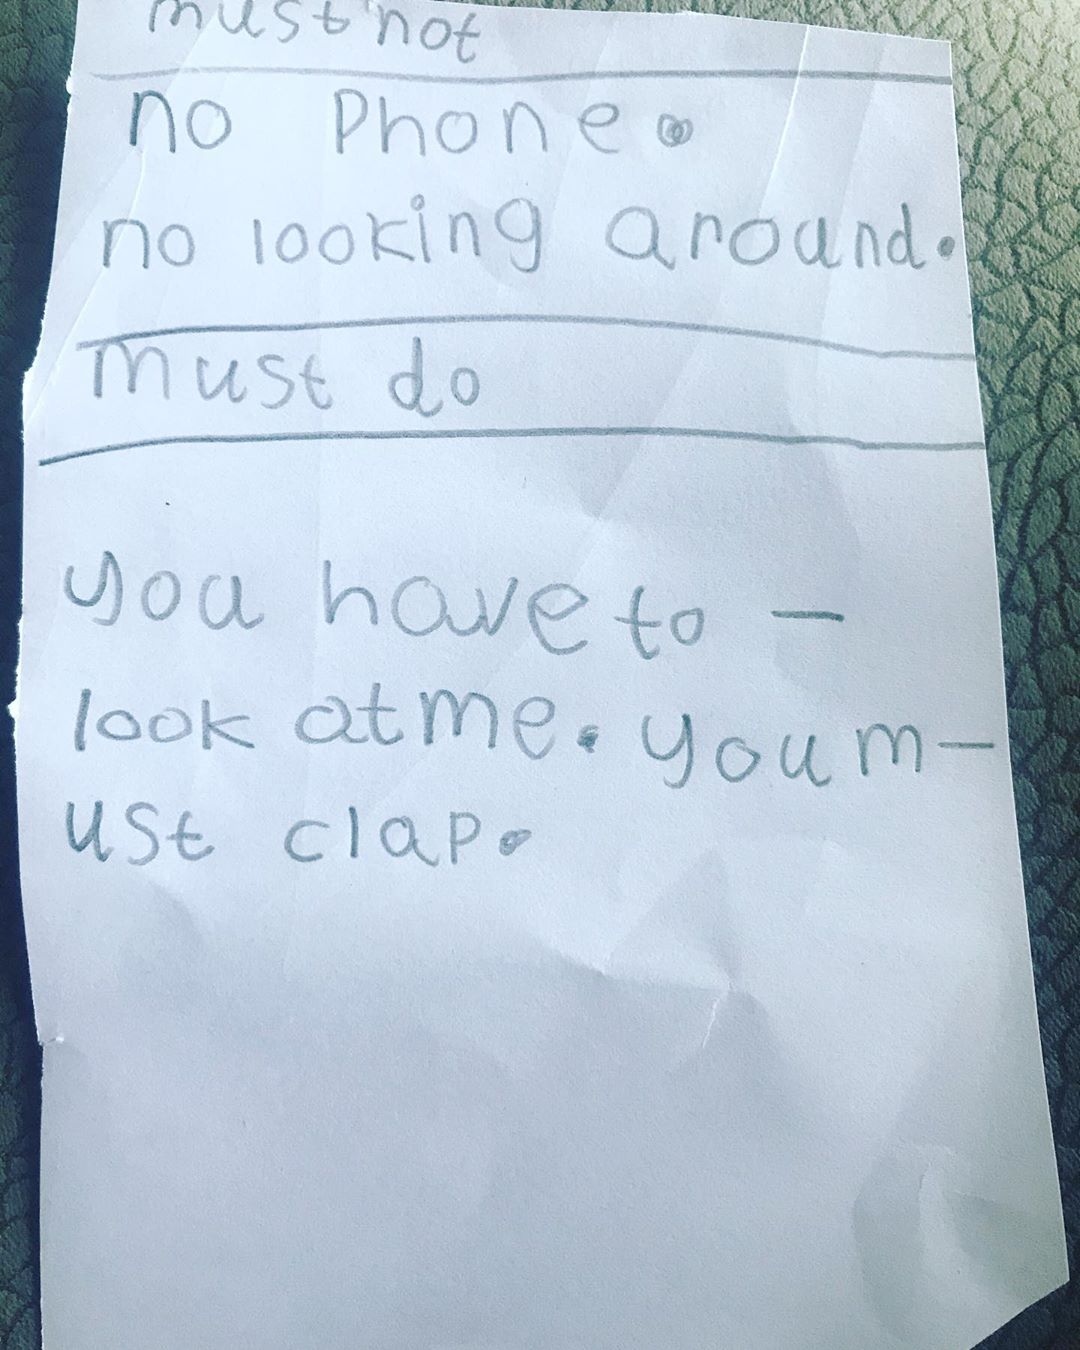 must not
no Phone.
no looking around.
must do
you have to -
look at me. you m-
ust clap.